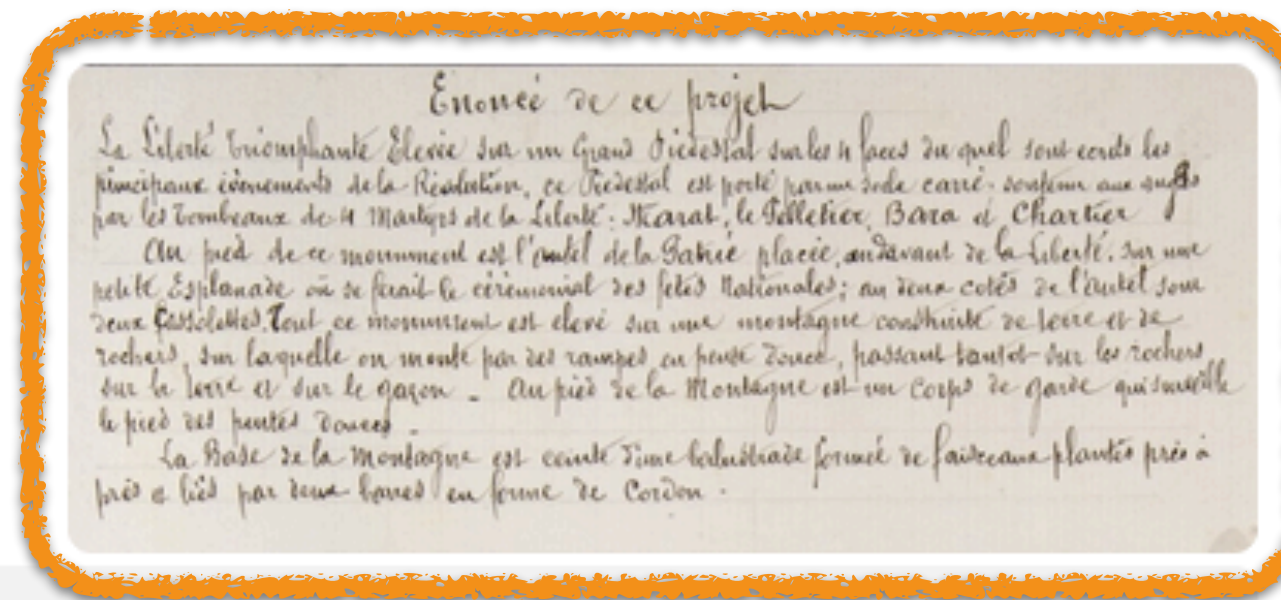 Enoncé de ce projet
La Liberté triomphante Elevée sur un Grand Piédestal sur les 4 faces du quel sont ecrits les
principaux évenements de la Révolution, ce Piedestal est porté par un socle carré soutenu aux angles
par les Tombeaux de 4 Martyrs de la Liberté : Marat, le Pelletier, Bara et Chartier
Au pied de ce monument est l'autel de la Patrie placée, au devant de la Liberté, sur une
petite Esplanade où se ferait le cérémonial des fetes Nationales ; au deux cotés de l'autel sont
deux Cassolettes. Tout ce monument est elevé sur une montagne construite de terre et de
rochers, sur laquelle on monte par des rampes en pente douce, passant tantot sur les rochers
sur la terre et sur le gazon _ Au pied de la Montagne est un corps de garde qui surveille
le pied des pentes douces.
La Base de la Montagne est ceinte d'une balustrade formée de faisceaux plantés près à
près et liés par deux barres en forme de Cordon.